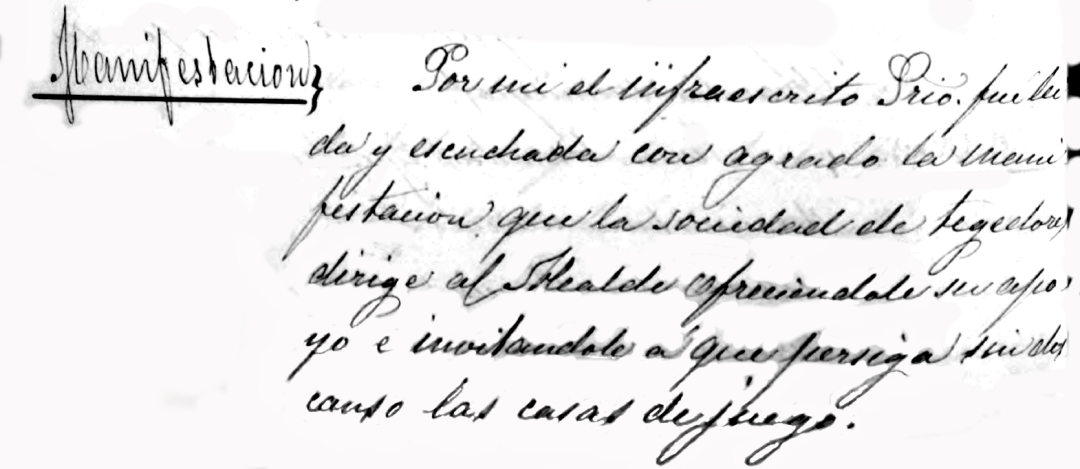 Manifestacion}
Por mi el infraescrito Srio. fué lei
da y escuchada con agrado la mani
festacion que la sociedad de tegedores
dirige al Alcalde ofreciendole su apo
yo e invitandole a que persiga sin des
canso las casas de juego.